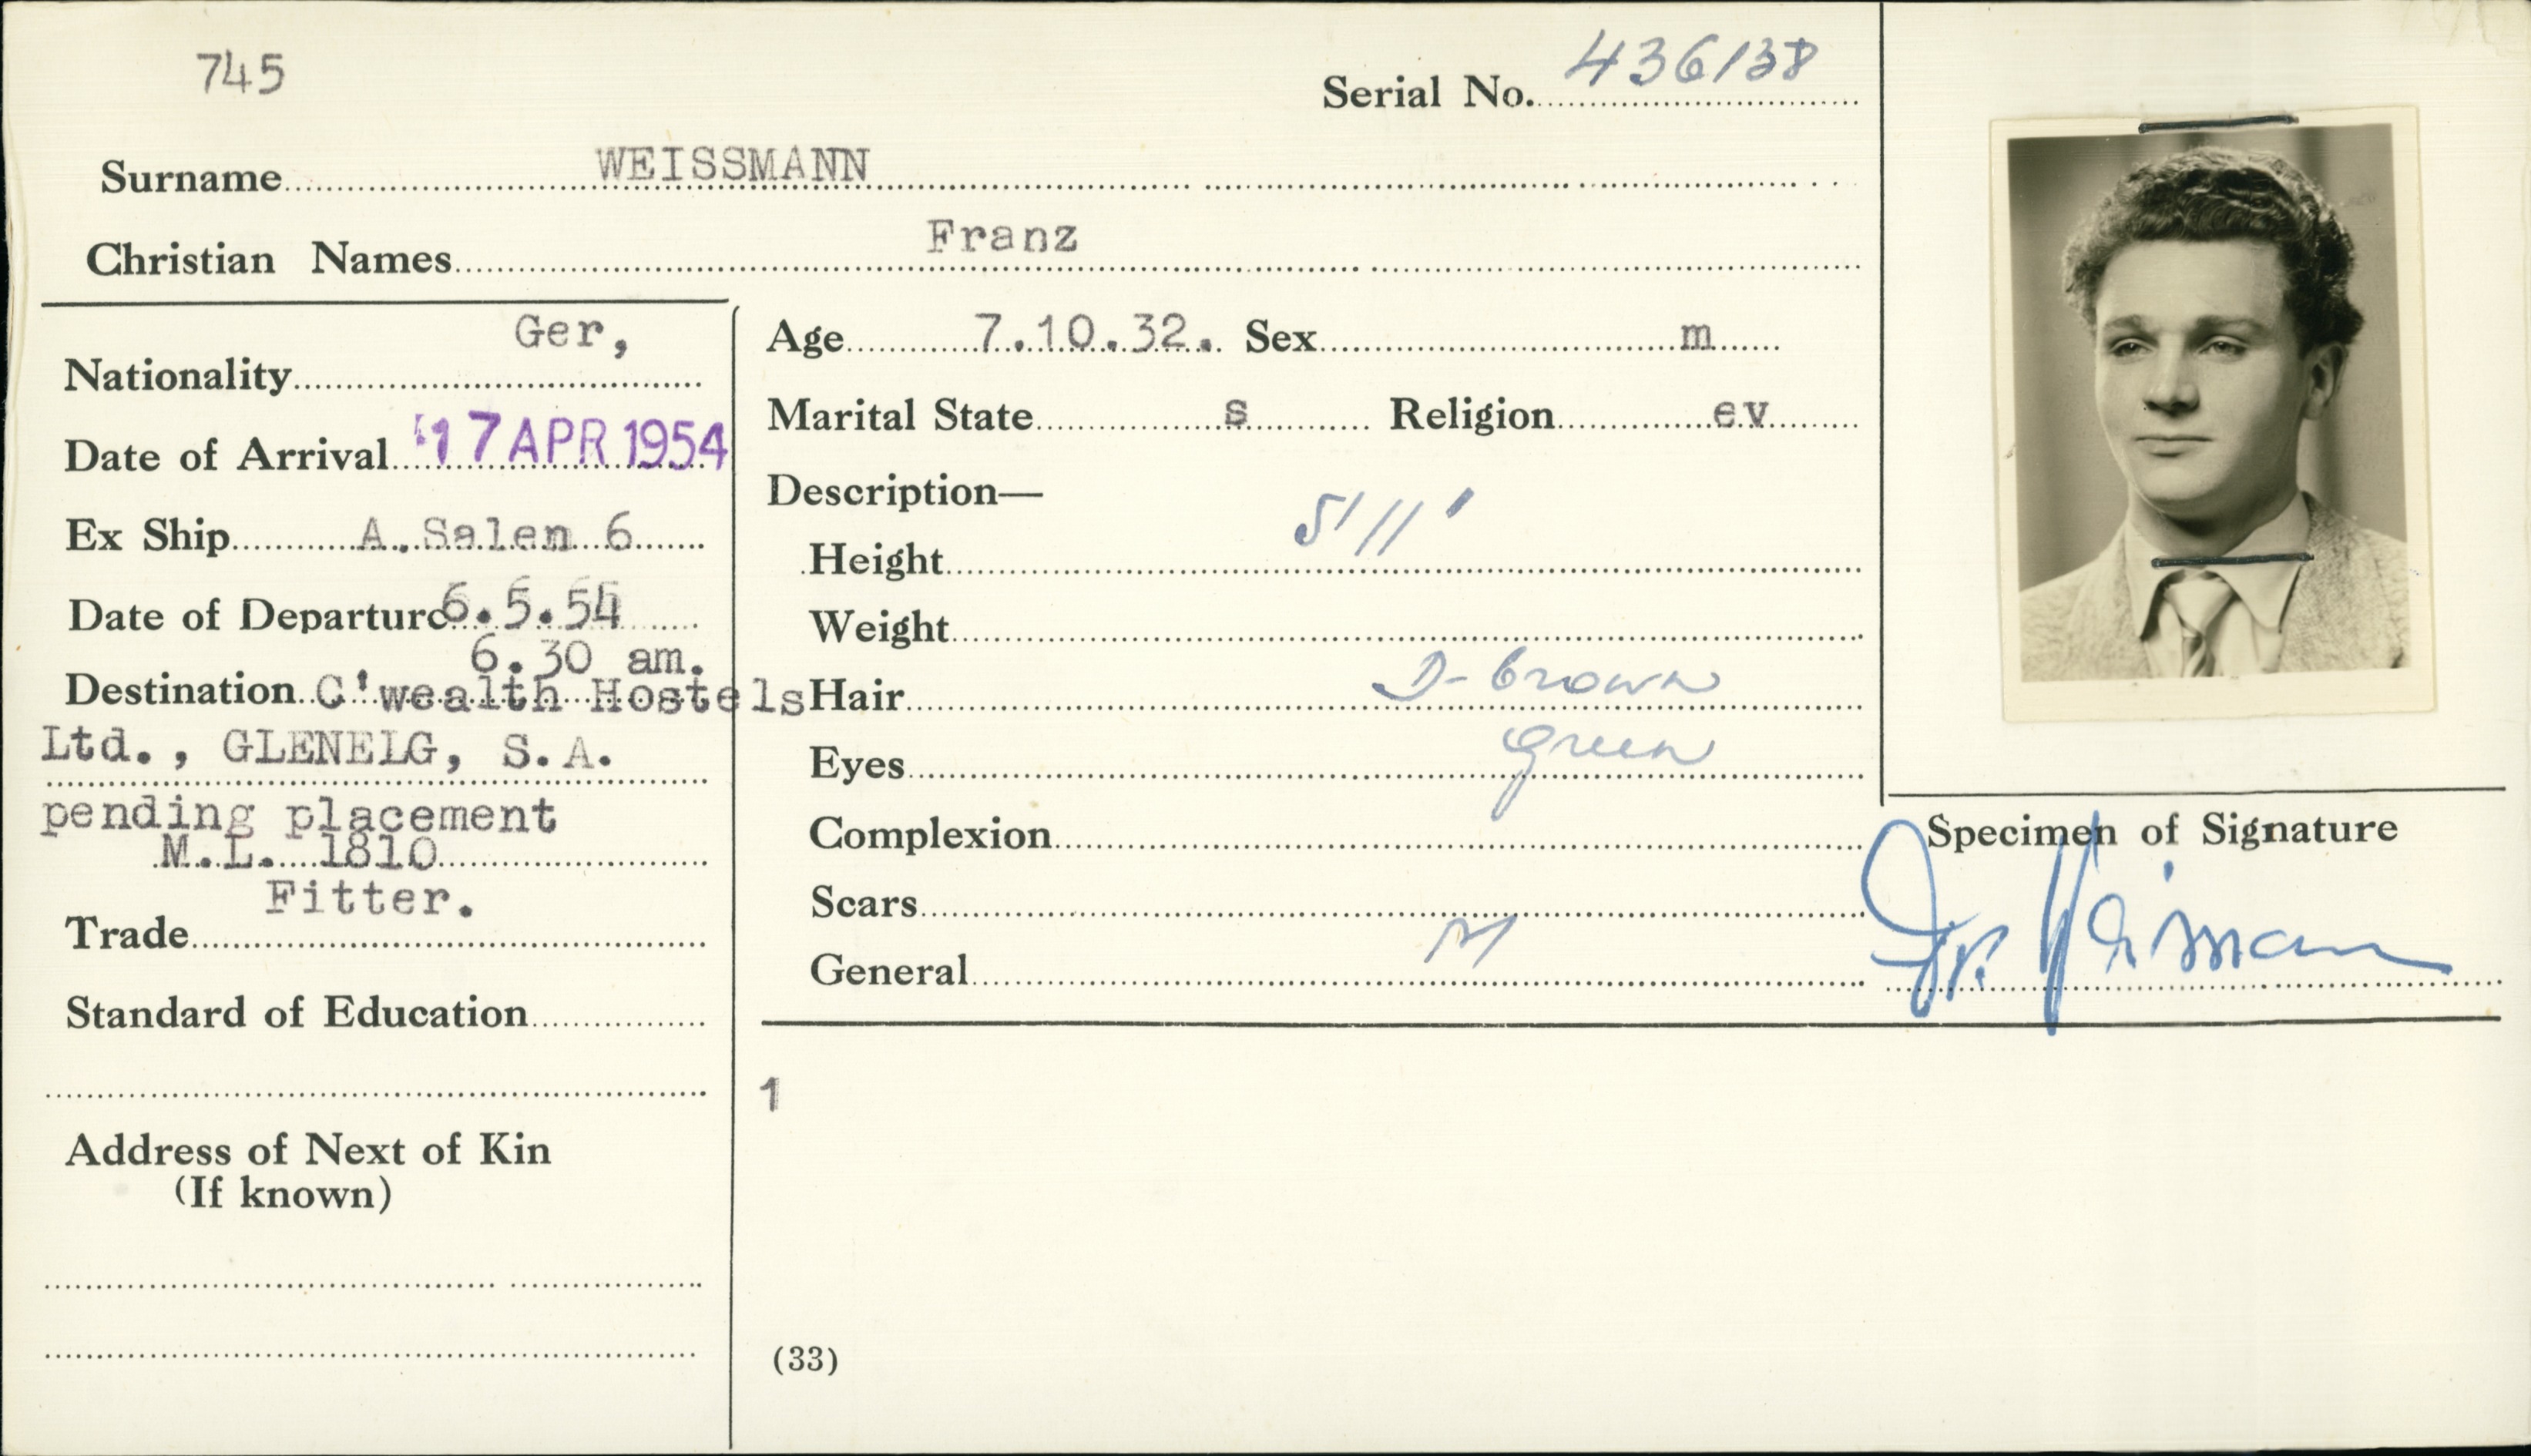 745
Serial No. 436138
Surname WEISSMANN
Christian Names Franz
Nationality Ger,
Date of Arrival 17 APR 1954
Ex Ship A.Salen 6
Date of Departure 6.5.54
6.30 am.
Destination C'wealth Hostels
Ltd., GLENELG, S.A.
pending placement
M.L. 1810
Fitter.
Trade
Standard of Education
Address of Next of Kin
(If known)
Age 7.10.32. Sex m
Marital State s Religion ev
Description—
Height 5'11'
Weight
Hair D-brown
Eyes green
Complexion
Scars
General
1
(33)
Specimen of Signature
Fr. Weissmann